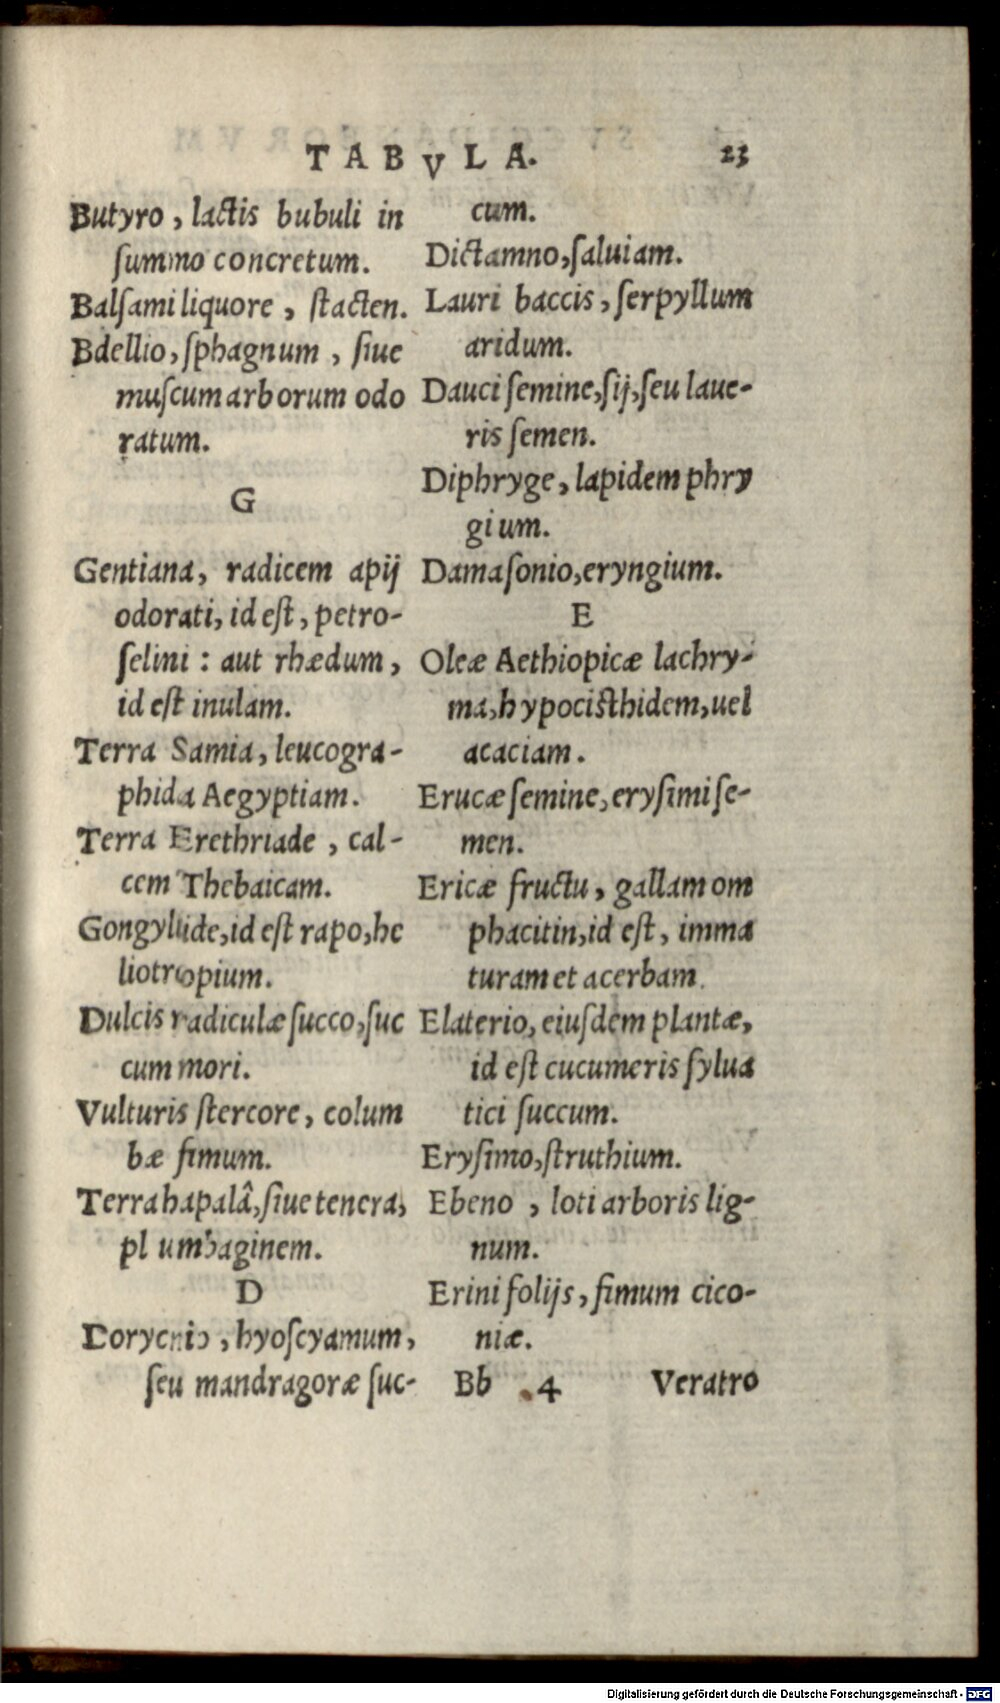 TABVLA. 23
Butyro, lactis bubuli in
ſummo concretum.
Balſami liquore, ſtacten.
Bdellio, ſphagnum, ſiue
muſcum arborum odo
ratum.
G
Gentiana, radicem apij
odorati, id eſt, petro-
ſelini: aut rhædum,
id eſt inulam.
Terra Samia, leucogra-
phida Aegyptiam.
Terra Erethriade, cal-
cem Thebaicam.
Gongylide, id eſt rapo, he
liotropium.
Dulcis radiculæ ſucco, ſuc
cum mori.
Vulturis ſtercore, colum
bæ fimum.
Terra hapalâ, ſiue tenera,
plumbaginem.
D
Dorycnio, hyoſcyamum,
ſeu mandragoræ ſuc-
cum.
Dictamno, ſaluiam.
Lauri baccis, ſerpyllum
aridum.
Dauci ſemine, ſij, ſeu laue-
ris ſemen.
Diphryge, lapidem phry
gium.
Damaſonio, eryngium.
E
Oleæ Aethiopicæ lachry-
ma, hypociſthidem, uel
acaciam.
Erucæ ſemine, eryſimi ſe-
men.
Ericæ fructu, gallam om
phacitin, id eſt, imma
turam et acerbam.
Elaterio, eiuſdem plantæ,
id eſt cucumeris ſylua
tici ſuccum.
Eryſimo, ſtruthium.
Ebeno, loti arboris lig-
num.
Erini folijs, fimum cico-
niæ.
Bb 4 Veratro
Digitalisierung gefördert durch die Deutsche Forschungsgemeinschaft - DFG